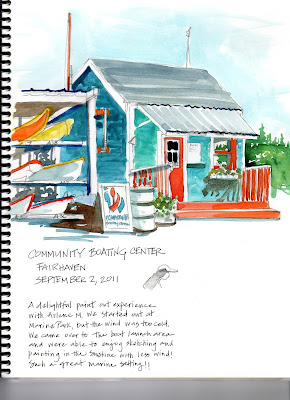 COMMUNITY
boating center
COMMUNITY BOATING CENTER
FAIRHAVEN
SEPTEMBER 2, 2011
A delightful paint out experience
with Arlene M. We started out at
Marine Park, but the wind was too cold.
We came over to the boat launch area
and were able to enjoy sketching and
painting in the sunshine with less wind!
Such a great marine setting!!